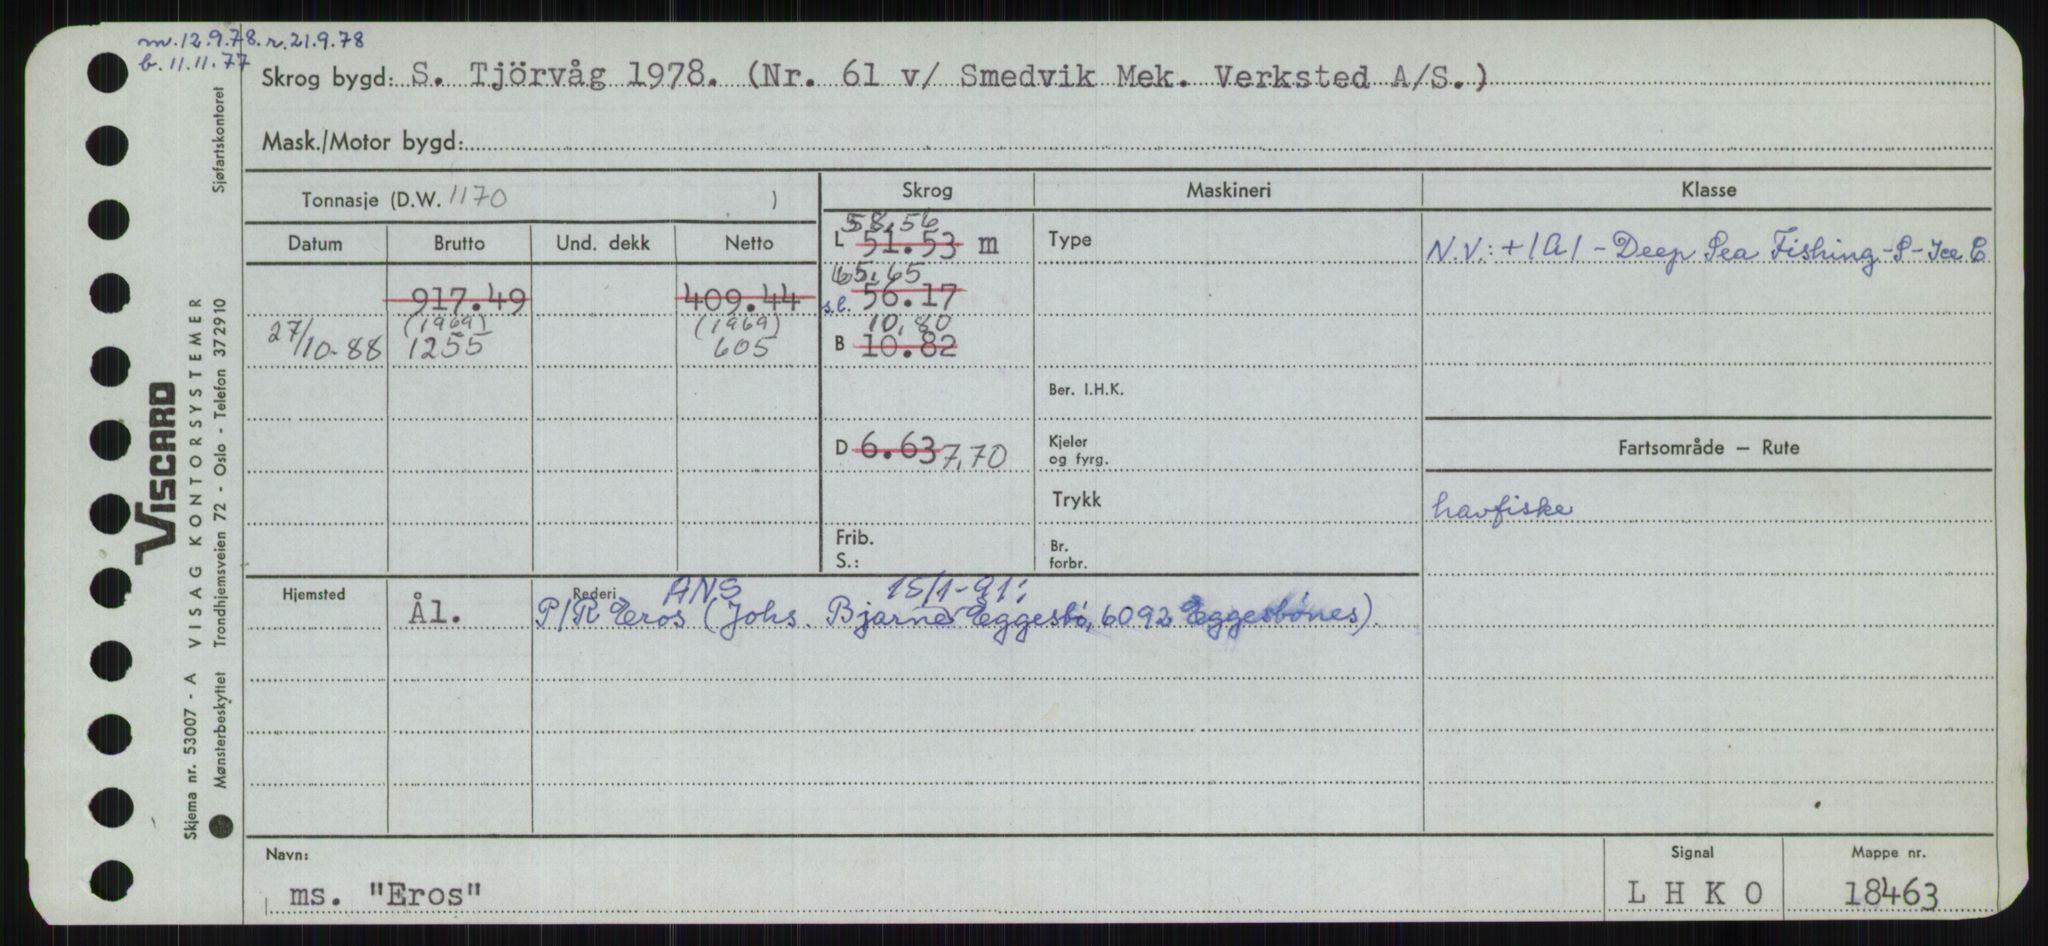 m. 12.9.78. r. 21.9.78
b. 11.11.77
Skrog bygd: S. Tjörvåg 1978. (Nr. 61 v/ Smedvik Mek. Verksted A/S.)
Mask./Motor bygd:
Tonnasje (D.W. 1170 )
Skrog
Maskineri
Klasse
Datum
Brutto
Und. dekk
Netto
58,56
L 51.53 m
Type
N.V.: +1A1 - Deep Sea Fishing - S - Ice C
65,65
917.49
409.44
s.b. 56.17
(1969)
(1969)
10,80
27/10-88 1255
605
B 10.82
Ber. I.H.K.
D 6.63 7,70
Kjeler
og fyrg.
Fartsområde — Rute
Trykk
havfiske
Frib.
S.:
Br.
forbr.
Hjemsted
Ål.
Rederi
ANS
15/1-91:
P/R Eros (Johs. Bjarne Eggesbø, 6092 Eggesbønes).
Navn:
ms. "Eros"
Signal
L H K O
Mappe nr.
18463
VISCARD
VISAG KONTORSYSTEMER
Skjema nr. 53007 - A
Sjøfartskontoret
Trondhjemsveien 72 - Oslo - Telefon 372910
Mønsterbeskyttet